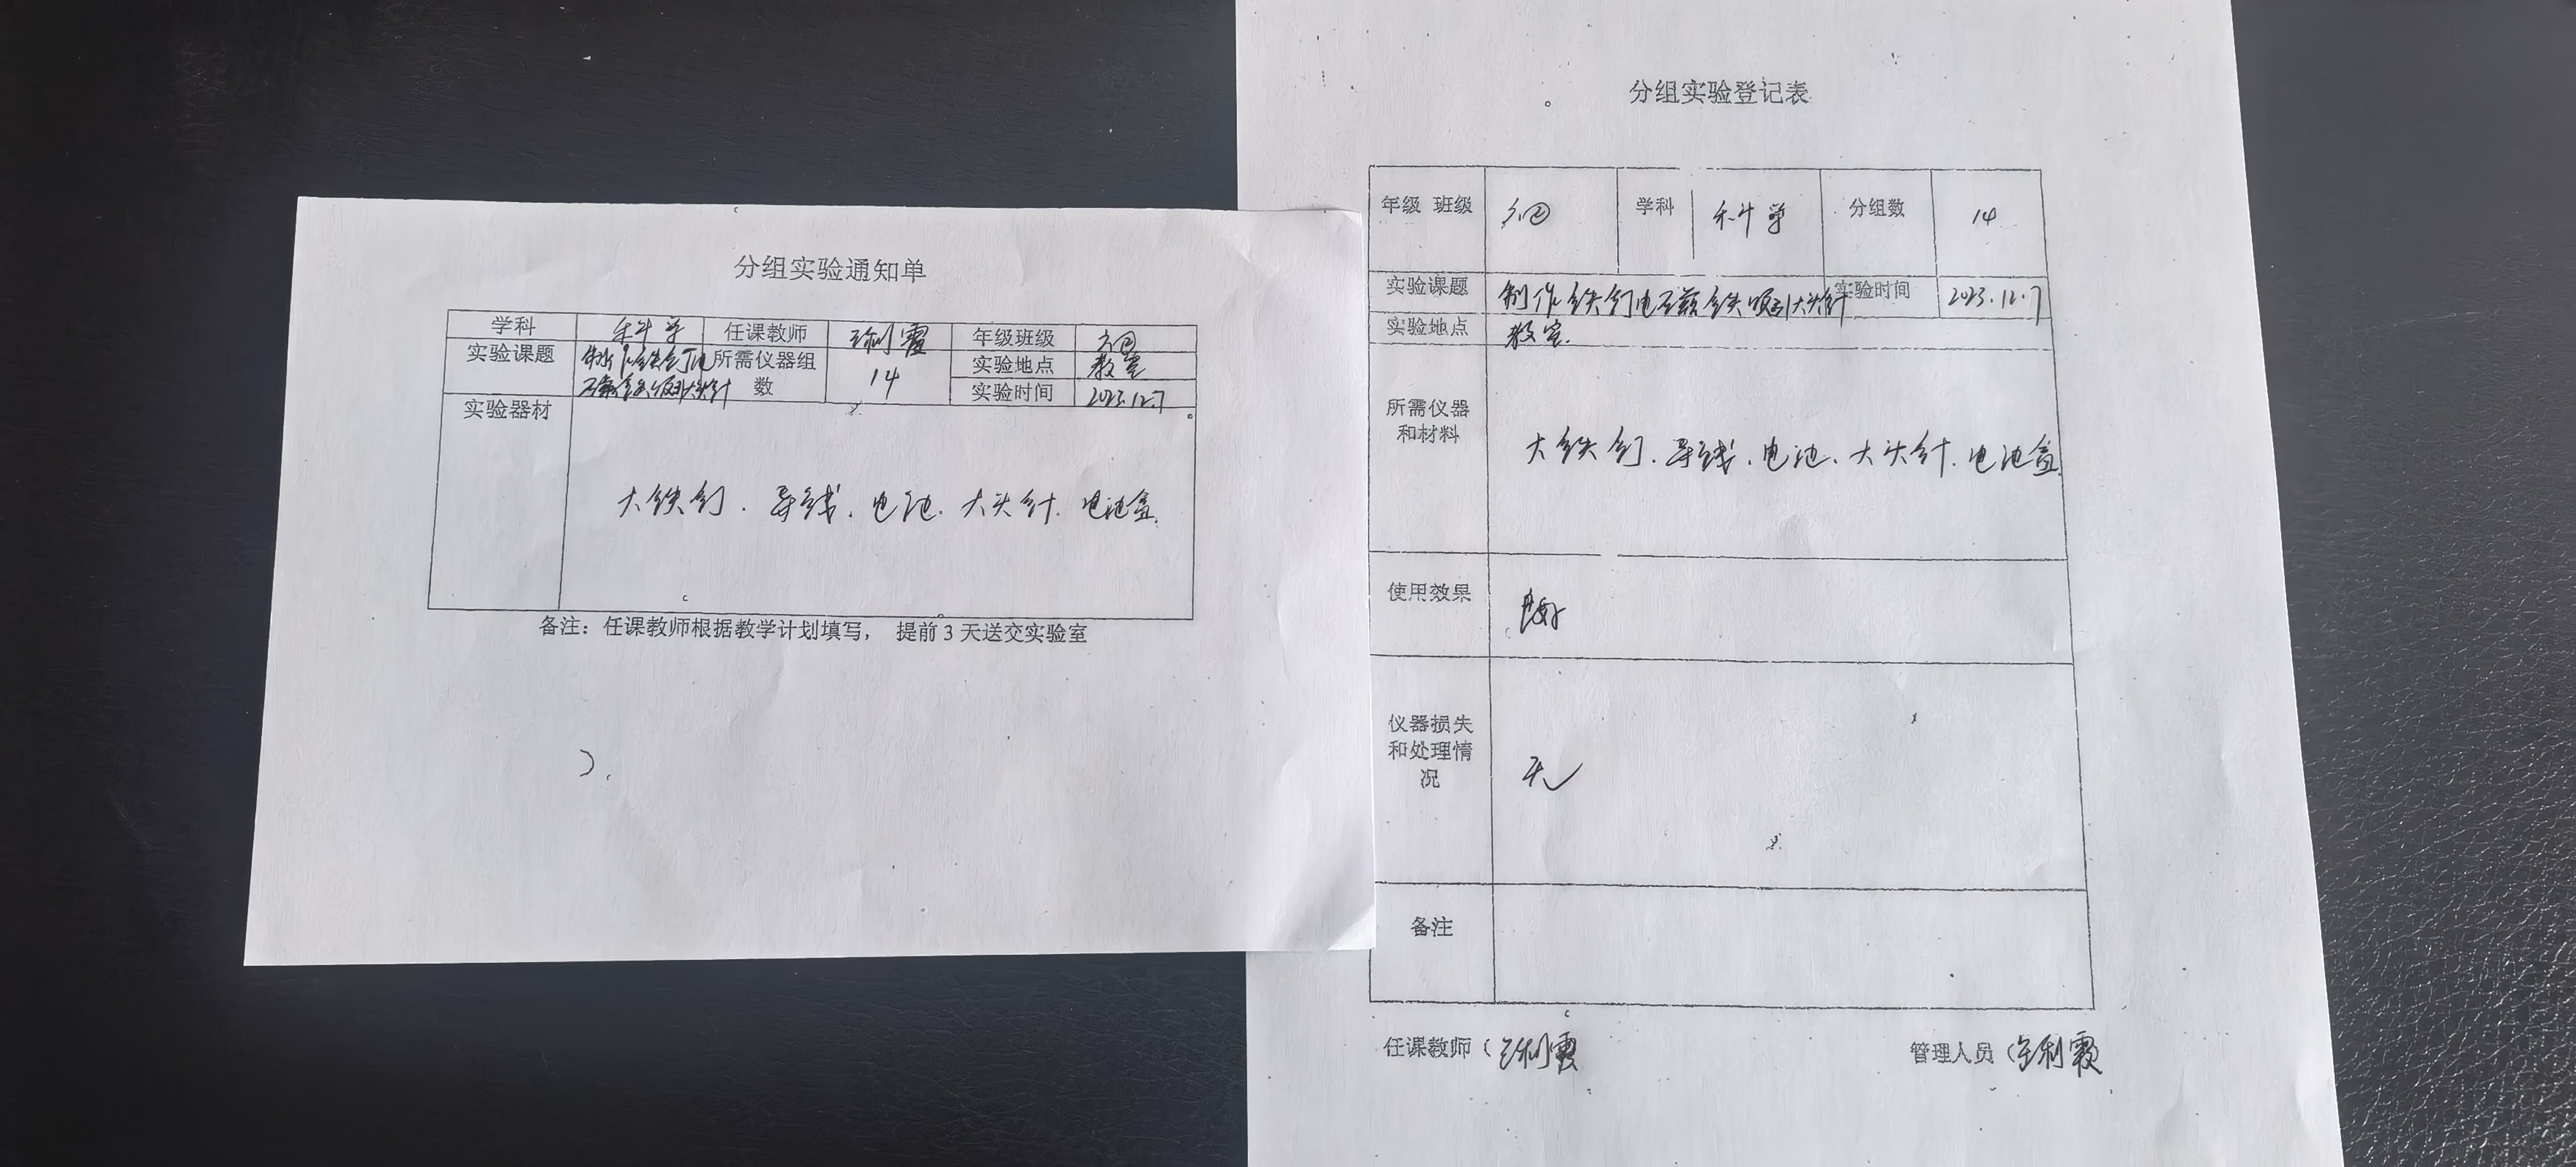 分组实验通知单
学科 科学 任课教师 利霞 年级班级 六④
实验课题 制作铁钉电磁铁吸引大头针 所需仪器组数 14 实验地点 教室
实验时间 2023.12.7
实验器材
大铁钉.导线.电池.大头针.电池盒.
备注：任课教师根据教学计划填写， 提前3天送交实验室
分组实验登记表
年级 班级 六④ 学科 科学 分组数 14
实验课题 制作铁钉电磁铁吸引大头针 实验时间 2023.12.7
实验地点 教室.
所需仪器
和材料
大铁钉.导线.电池.大头针.电池盒.
使用效果 良好
仪器损失
和处理情
况
无
备注
任课教师（ 利霞
管理人员（ 利霞